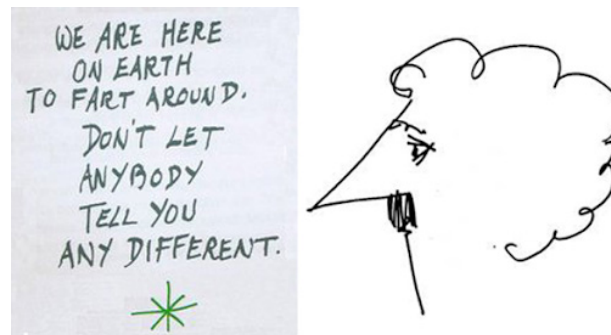 WE ARE HERE
ON EARTH
TO FART AROUND.
DON'T LET
ANYBODY
TELL YOU
ANY DIFFERENT.